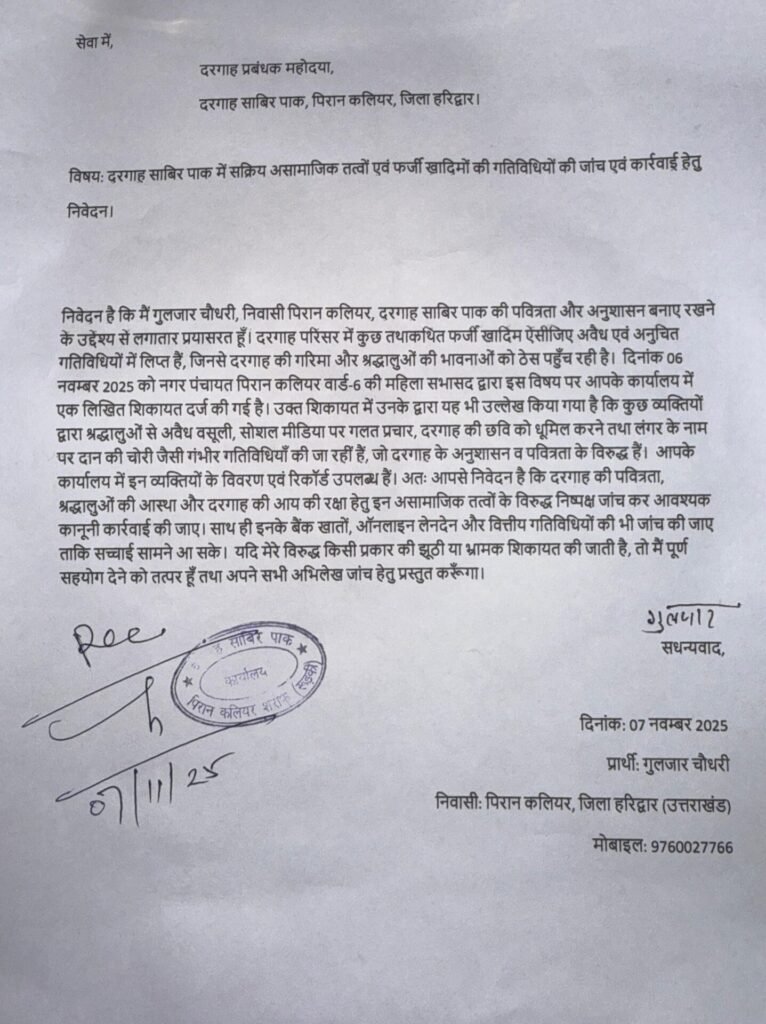 सेवा में,
दरगाह प्रबंधक महोदया,
दरगाह साबिर पाक, पिरान कलियर, जिला हरिद्वार।
विषय: दरगाह साबिर पाक में सक्रिय असामाजिक तत्वों एवं फर्जी खादिमों की गतिविधियों की जांच एवं कार्रवाई हेतु
निवेदन।
निवेदन है कि मैं गुलजार चौधरी, निवासी पिरान कलियर, दरगाह साबिर पाक की पवित्रता और अनुशासन बनाए रखने
के उद्देश्य से लगातार प्रयासरत हूँ। दरगाह परिसर में कुछ तथाकथित फर्जी खादिम ऐंसीजिए अवैध एवं अनुचित
गतिविधियों में लिप्त हैं, जिनसे दरगाह की गरिमा और श्रद्धालुओं की भावनाओं को ठेस पहुँच रही है। दिनांक 06
नवम्बर 2025 को नगर पंचायत पिरान कलियर वार्ड-6 की महिला सभासद द्वारा इस विषय पर आपके कार्यालय में
एक लिखित शिकायत दर्ज की गई है। उक्त शिकायत में उनके द्वारा यह भी उल्लेख किया गया है कि कुछ व्यक्तियों
द्वारा श्रद्धालुओं से अवैध वसूली, सोशल मीडिया पर गलत प्रचार, दरगाह की छवि को धूमिल करने तथा लंगर के नाम
पर दान की चोरी जैसी गंभीर गतिविधियाँ की जा रहीं हैं, जो दरगाह के अनुशासन व पवित्रता के विरुद्ध हैं। आपके
कार्यालय में इन व्यक्तियों के विवरण एवं रिकॉर्ड उपलब्ध हैं। अतः आपसे निवेदन है कि दरगाह की पवित्रता,
श्रद्धालुओं की आस्था और दरगाह की आय की रक्षा हेतु इन असामाजिक तत्वों के विरुद्ध निष्पक्ष जांच कर आवश्यक
कानूनी कार्रवाई की जाए। साथ ही इनके बैंक खातों, ऑनलाइन लेनदेन और वित्तीय गतिविधियों की भी जांच की जाए
ताकि सच्चाई सामने आ सके। यदि मेरे विरुद्ध किसी प्रकार की झूठी या भ्रामक शिकायत की जाती है, तो मैं पूर्ण
सहयोग देने को तत्पर हूँ तथा अपने सभी अभिलेख जांच हेतु प्रस्तुत करूँगा।
गुलजार
सधन्यवाद,
Rec
साबिर पाक
कार्यालय
पिरान कलियर शरीफ (रूड़की)
07/11/25
दिनांक: 07 नवम्बर 2025
प्रार्थी: गुलजार चौधरी
निवासी: पिरान कलियर, जिला हरिद्वार (उत्तराखंड)
मोबाइल: 9760027766